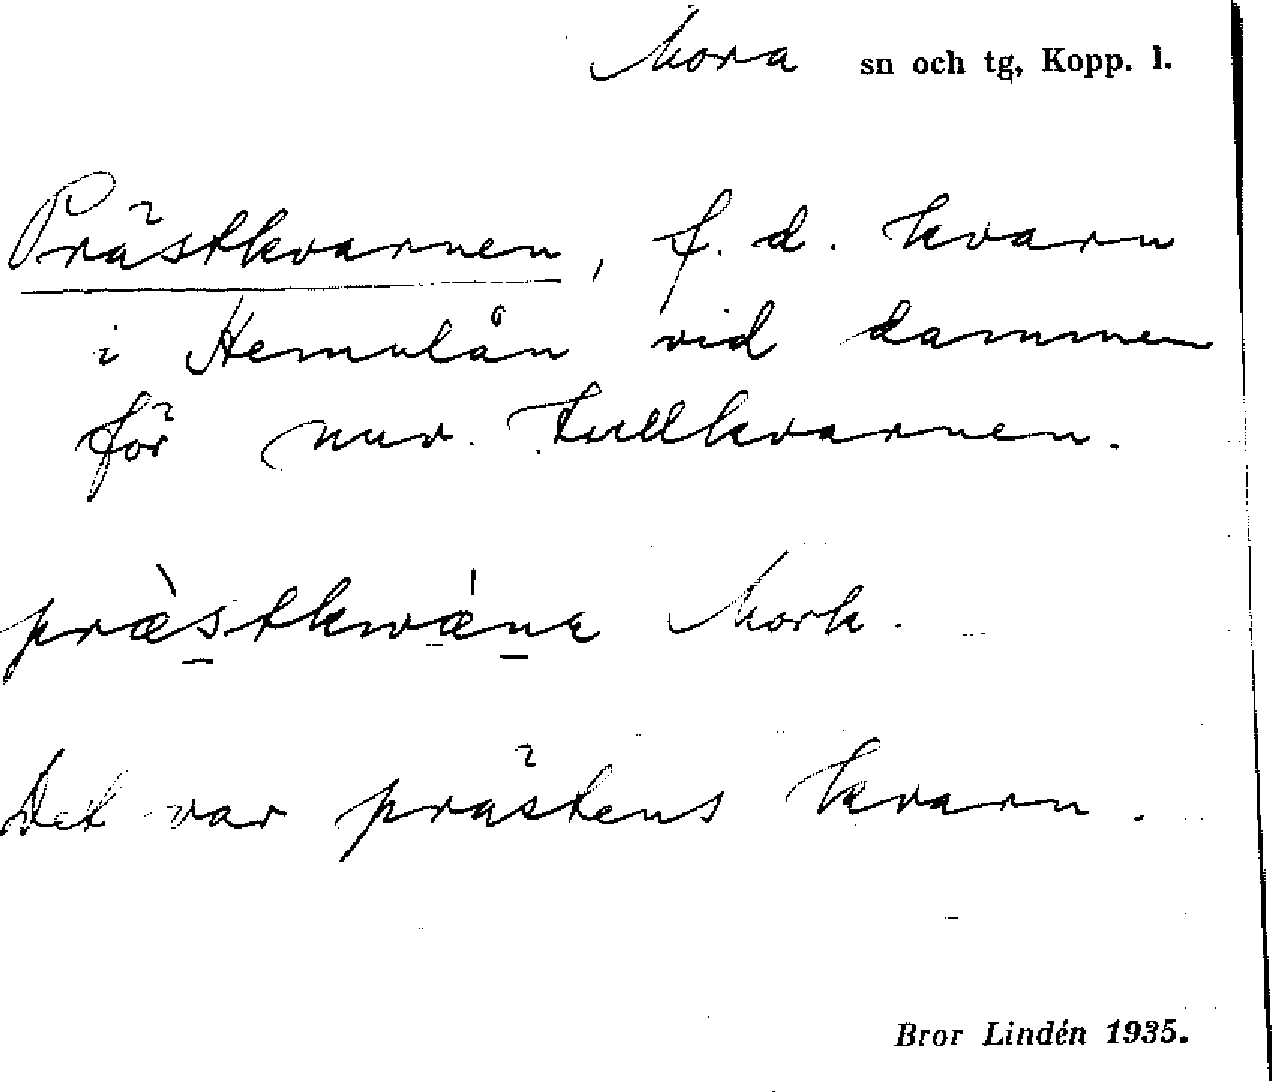 Mora sn och tg, Kopp. l.
Prästkvarnen, f.d. kvarn
i Hemulån vid dammen
för nuv. tullkvarnen.
præ̀stkwǽnɐ Mork.
Det var prästens kvarn.
Bror Lindén 1935.